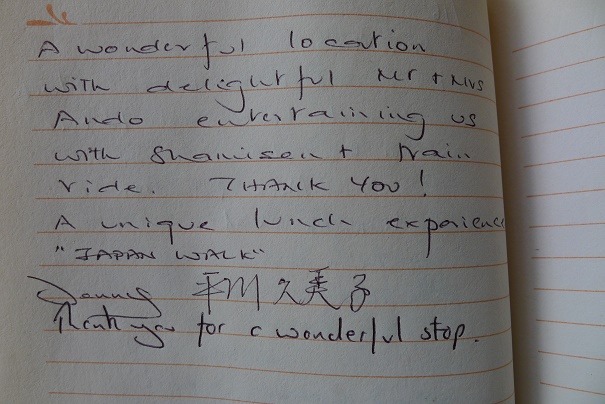 A wonderful location
with delightful Mr + Mrs
Ando entertaining us
with Shamisen + train
ride. THANK YOU!
A unique lunch experience
"JAPAN WALK"
平川久美子
Thank you for a wonderful stop.